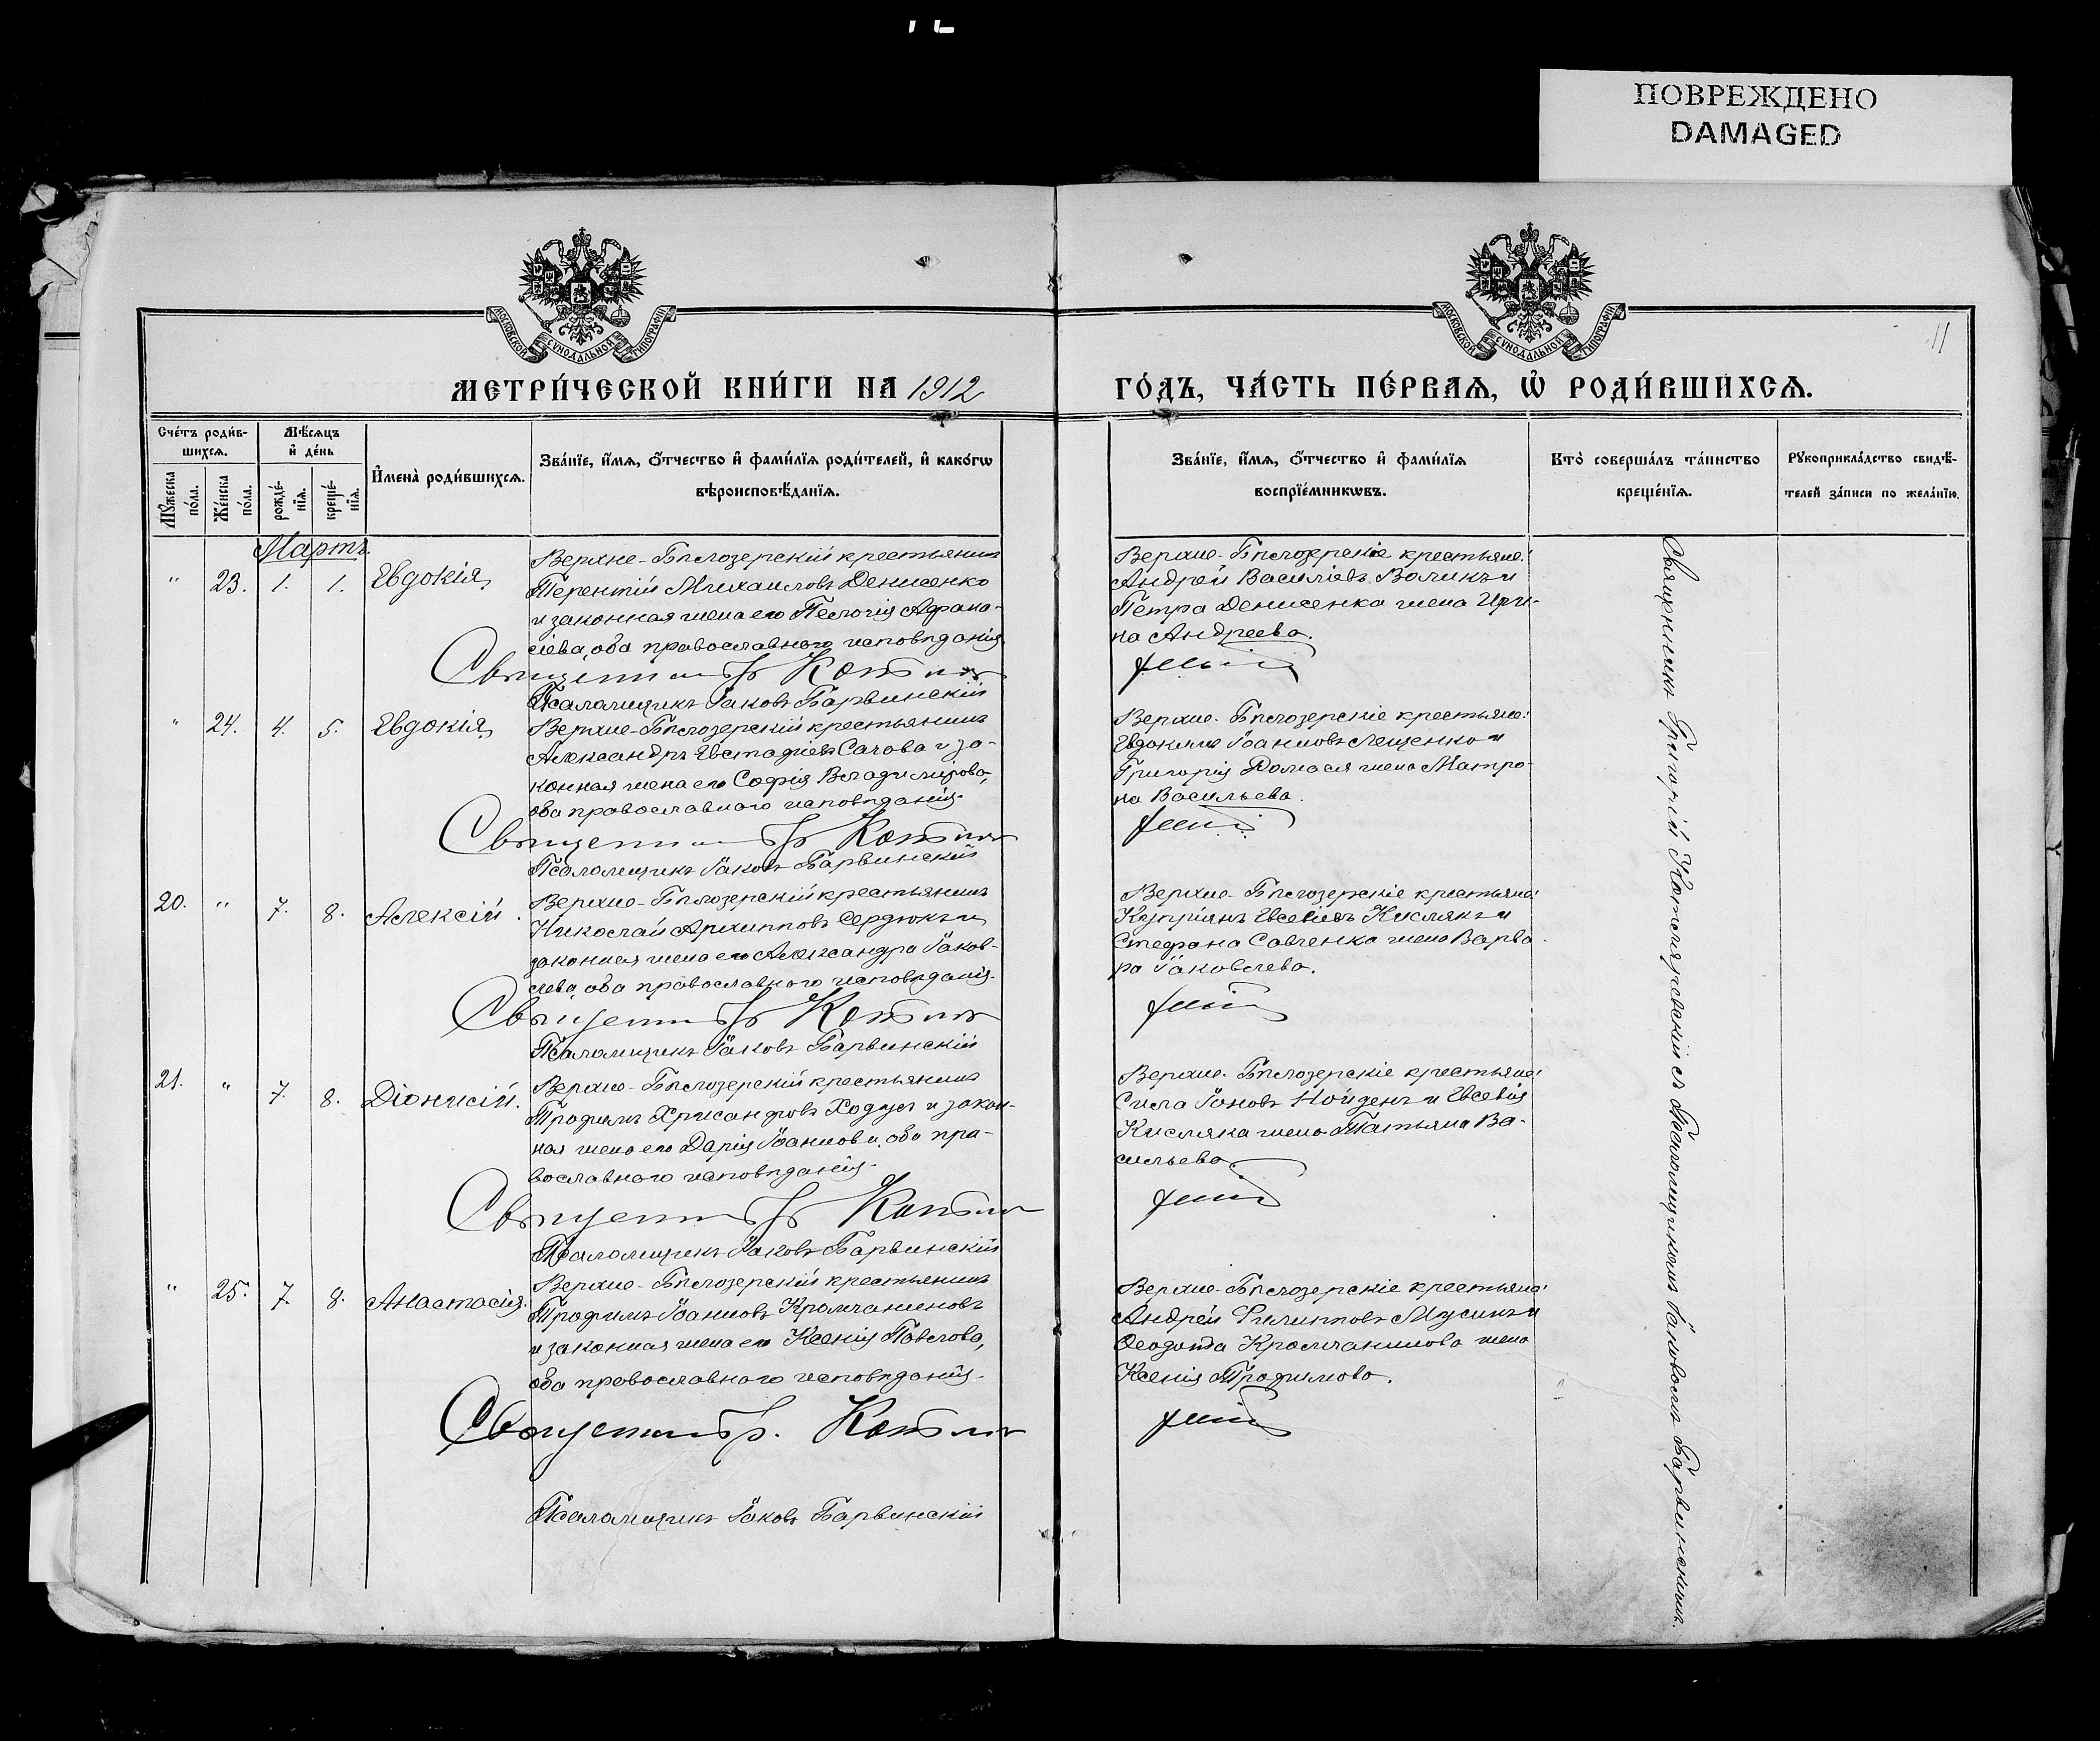 ПОВРЕЖДЕНО
DAMAGED
МОСКОВСКОЙ СѴНОДАЛЬНОЙ ТИПОГРАФІИ
МОСКОВСКОЙ СѴНОДАЛЬНОЙ ТИПОГРАФІИ
11
МЕТРИ́ЧЕСКОЙ КНИ́ГИ НА 1912
ГО́ДЪ, ЧА́СТЬ ПЕ́РВАѦ, Ѡ҆ РОДИ́ВШИХСѦ.
Сче́тъ роди́в-
шихсѧ.
Мꙋ́жеска по́ла.
Же́нска по́ла.
Мѣ́сѧцъ и҆ де́нь
рожде́-нїѧ.
креще́-нїѧ.
И҆мена̀ роди́вшихсѧ.
Зва́нїе, и҆́мѧ, ѻ҆́тчество и҆ фами́лїѧ роди́телей, и҆ како́гѡ
вѣроисповѣ́данїѧ.
Зва́нїе, и҆́мѧ, ѻ҆́тчество и҆ фами́лїѧ
воспрїе́мникѡвъ.
Кто̀ соверша́лъ та́инство
креще́нїѧ.
Рꙋкоприкла́дство свидѣ́-
телей за́писи по жела́нїю.
Мартъ
" 23. 1. 1. Евдокія
Верхне-Бѣлозерскій крестьянинъ
Терентій Михаиловъ Денисенко
и законная жена его Пелагія Афана-
сіева, оба православнаго исповѣданія.
Псаломщикъ Іаковъ Барвинскій
Верхне-Бѣлозерскіе крестьяне:
Андрей Василіевъ Воликъ и
Петра Денисенка жена Ири-
на Андреева.
" 24. 4. 5. Евдокія
Верхне-Бѣлозерскій крестьянинъ
Александръ Евстафіевъ Сачава и за-
конная жена его Софія Владимірова,
оба православнаго исповѣданія.
Псаломщикъ Іаковъ Барвинскій
Верхне-Бѣлозерскіе крестьяне:
Евдокимъ Іоанновъ Лещенко и
Григорія жена Матро-
на Васильева.
20. " 7. 8. Алексій.
Верхне-Бѣлозерскій крестьянинъ
Николай Архипповъ Сердюкъ и
законная жена его Александра Іаков-
лева, оба православнаго исповѣданія.
Псаломщикъ Іаковъ Барвинскій
Верхне-Бѣлозерскіе крестьяне:
Купріянъ Евсевіевъ Кислякъ и
Стефана Савченка жена Варва-
ра Іаковлева.
21. " 7. 8. Діонисій.
Верхне-Бѣлозерскій крестьянинъ
Трофимъ Хрисанфовъ Ходусъ и закон-
ная жена его Дарія Іоаннова, оба пра-
вославнаго исповѣданія.
Псаломщикъ Іаковъ Барвинскій
Верхне-Бѣлозерскіе крестьяне:
Сила Іоновъ Найденъ и Евсевія
Кисляка жена Татьяна Ва-
сильева
" 25. 7. 8. Анастасія.
Верхне-Бѣлозерскій крестьянинъ
Трофимъ Іоанновъ Крамчаниновъ
и законная жена его Ксенія Павлова,
оба православнаго исповѣданія.
Псаломщикъ Іаковъ Барвинскій
Верхне-Бѣлозерскіе крестьяне:
Андрей Филипповъ Мусикъ и
Феодота Крамчанинова жена
Ксенія Трофимова.
Священникъ Григорій Котляревскій съ Псаломщикомъ Іаковомъ Барвинскимъ.